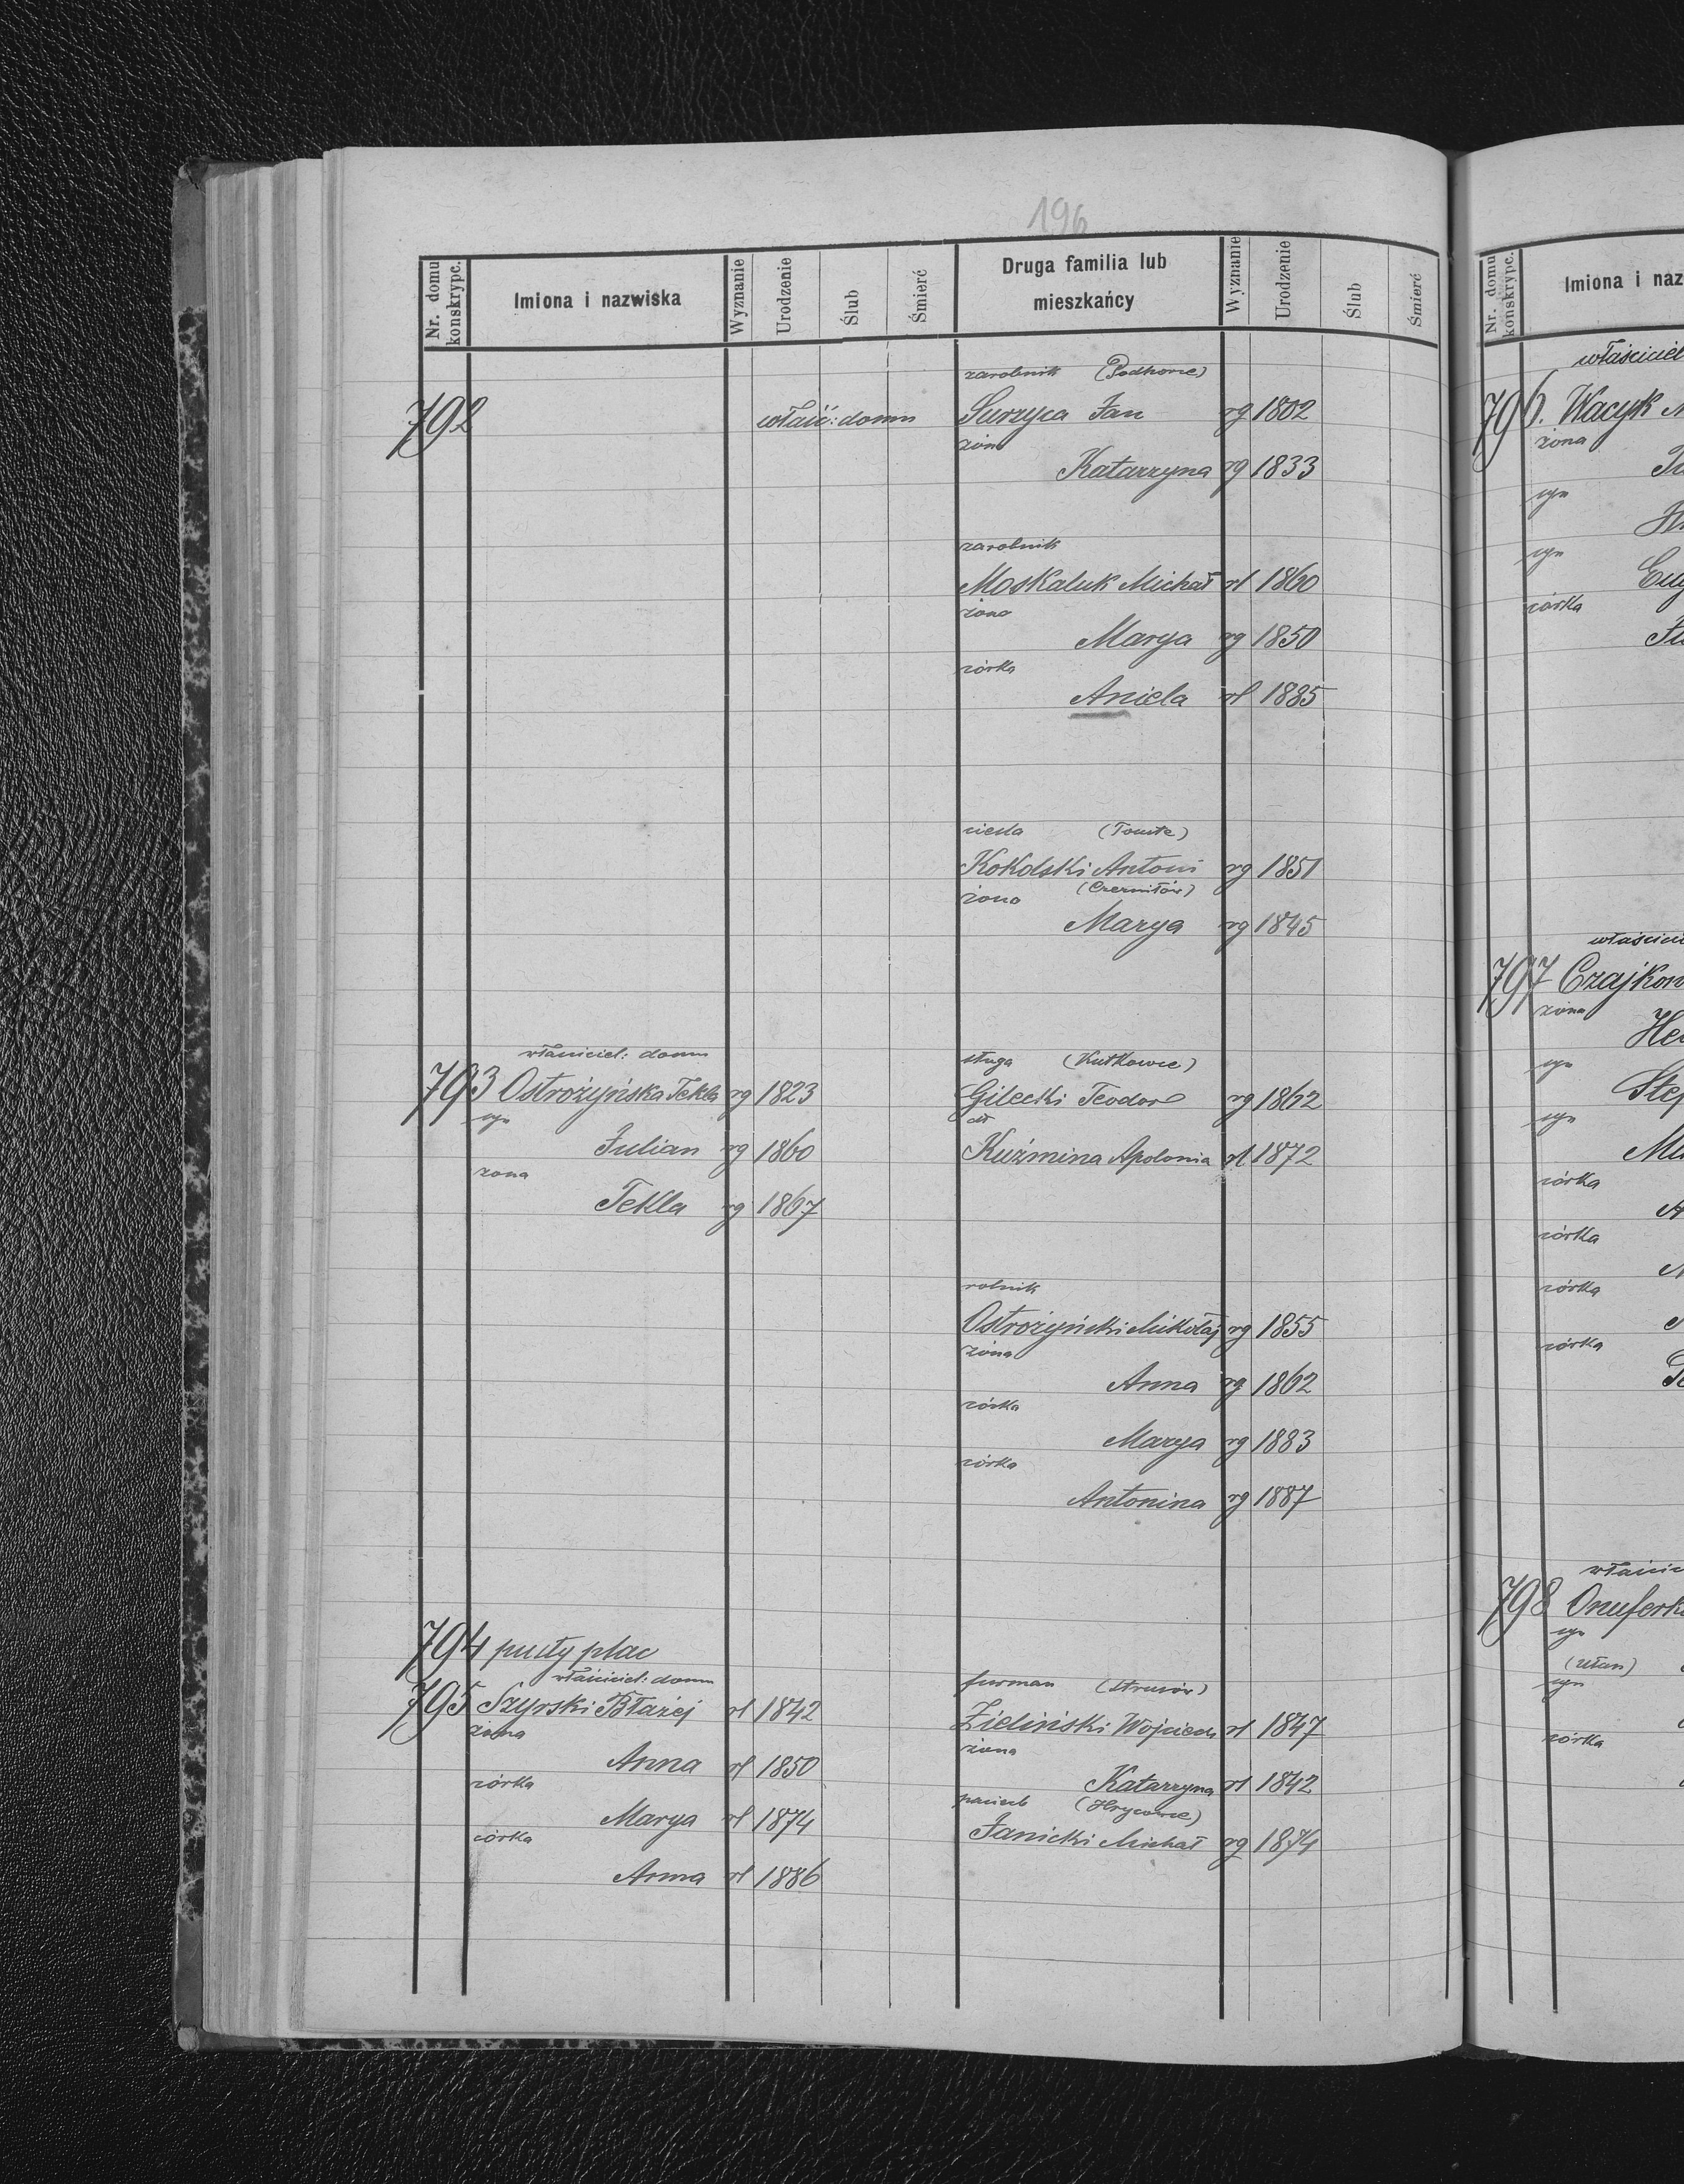 196
Nr. domu konskrypc. Imiona i nazwiska Wyznanie Urodzenie Ślub Śmierć Druga familia lub mieszkańcy Wyznanie Urodzenie Ślub Śmierć
zarobnik (Podhorce)
792 właść: domu Surzyca Jan rg 1802
żona
Katarzyna rg 1833
zarobnik
Moskaluk Michał rl 1860
żona
Marya rg 1850
córka
Aniela rl 1885
cieśla (Touste)
Kokolski Antoni rg 1851
żona (Czerniłów)
Marya rg 1845
właściciel: domu sługa (Kutkowce)
793 Ostrożyńska Tekla rg 1823 Gilecki Teodor rg 1862
syn dt
Julian rg 1860 Kuźmina Apolonia rl 1872
żona
Tekla rg 1867
rolnik
Ostrożyński Mikołaj rg 1855
żona
Anna rg 1862
córka
Marya rg 1883
córka
Antonina rg 1887
794 pusty plac
właściciel: domu furman (Strusów)
795 Szyrski Błażej rl 1842 Zieliński Wojciech rl 1847
żona żona
Anna rl 1850 Katarzyna rl 1842
córka pasierb (Hrycowce)
Marya rl 1874 Janicki Michał rg 1874
córka
Anna rl 1886
Nr. domu konskrypc. Imiona i naz
właściciel
796. Wacyk
żona
syn
syn
Eug
córka
właścici
797 Czajkow
żona
He
syn
Step
syn
córka
córka
córka
córka
właścic
798 Onuferk
syn
(ułan)
syn
córka